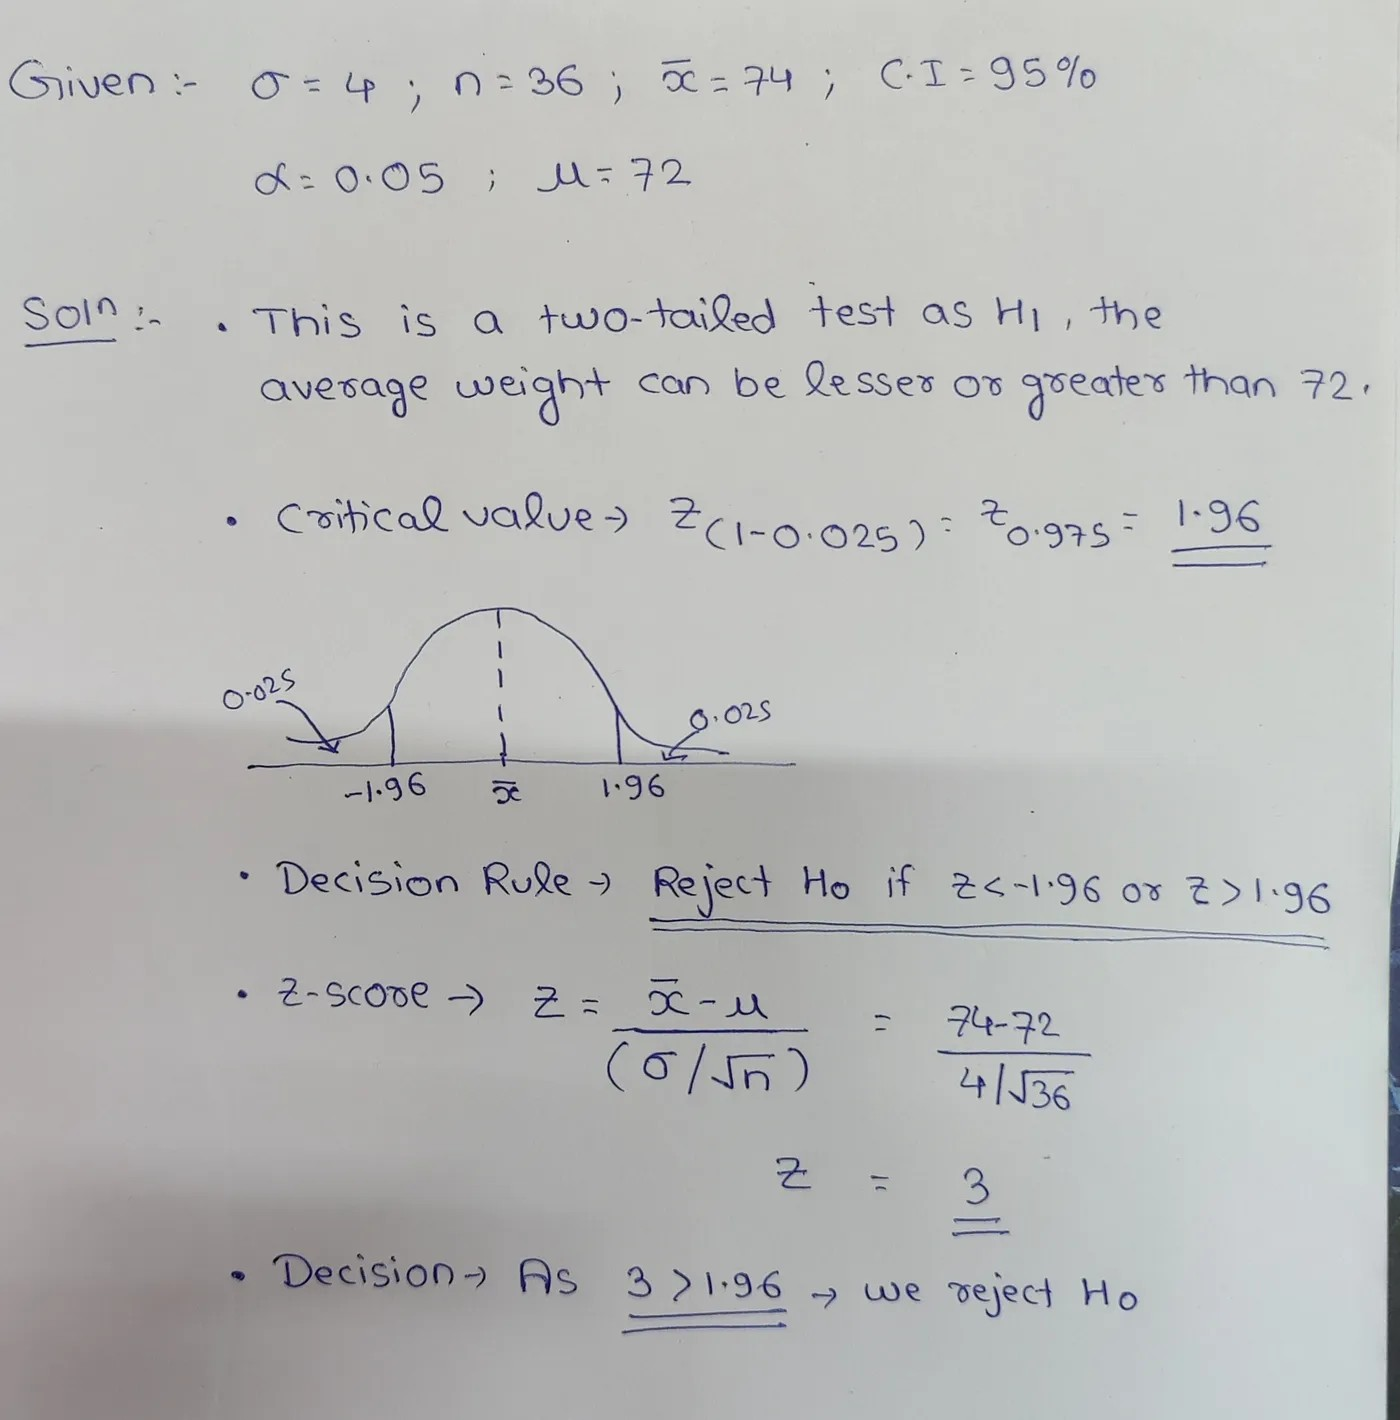 Given :- σ = 4 ; n = 36 ; x̄ = 74 ; C.I = 95%
α = 0.05 ; μ = 72
Solⁿ :- • This is a two-tailed test as H₁, the
average weight can be lesser or greater than 72.
• Critical value → Z(1-0.025) = Z0.975 = 1.96
0.025
0.025
-1.96 x̄ 1.96
• Decision Rule → Reject H₀ if z < -1.96 or z > 1.96
• z-score → z = x̄ - μ / (σ/√n) = 74-72 / 4/√36
z = 3
• Decision → As 3 > 1.96 → we reject H₀